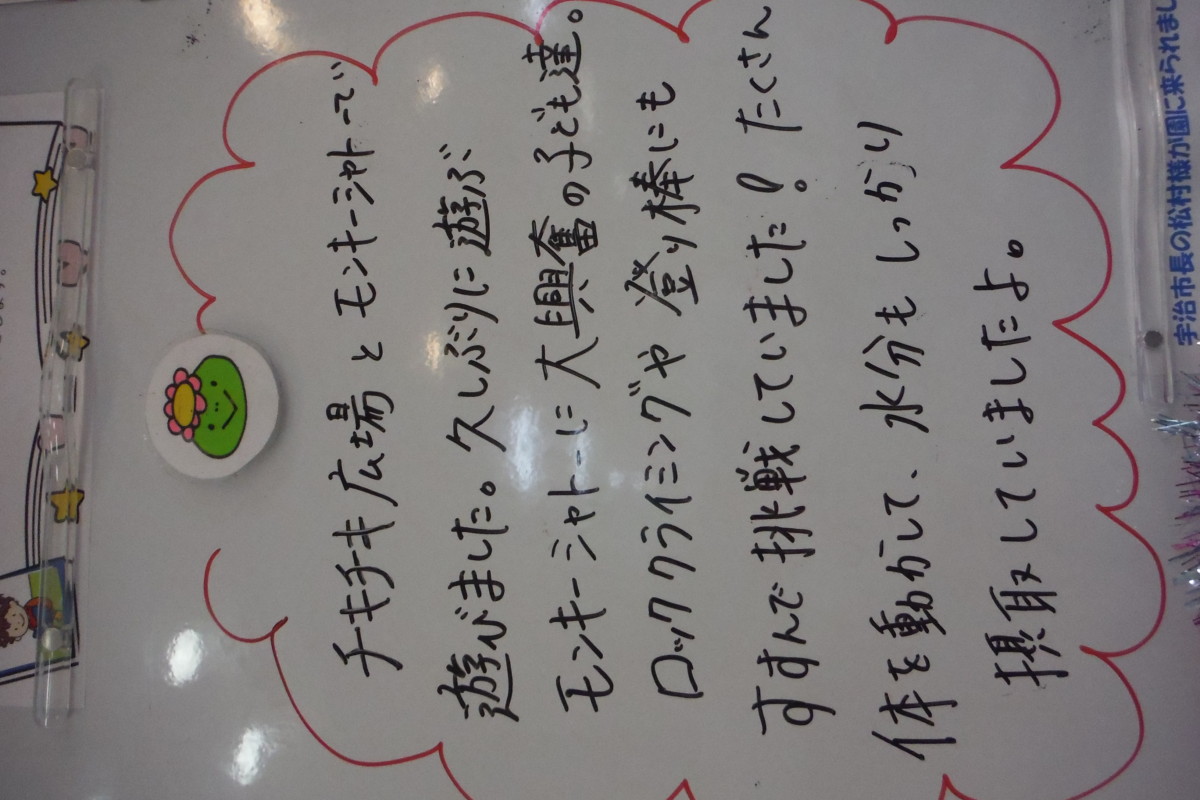 チキチキ広場とモンキーシャトーで
遊びました。久しぶりに遊ぶ
モンキーシャトーに大興奮の子ども達。
ロッククライミングや登り棒にも
すすんで挑戦していました！たくさん
体を動かして、水分もしっかり
摂取していましたよ。
宇治市長の松村様が園に来られまし